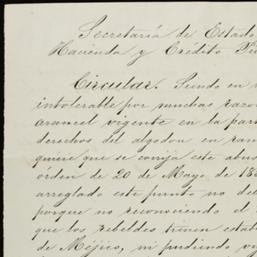 Secretaría de Estado
Hacienda y Crédito
Circular. Siendo en
intolerable por muchas razo
arancel vigente en la par
derechos del algodon en ram
quiere que se corrija este abus
órden de 20 de Mayo de 18
arreglado este punto no del
porque no reconociendo el
que los rebeldes tienen estab
de Méjico, ni pudiendo vi